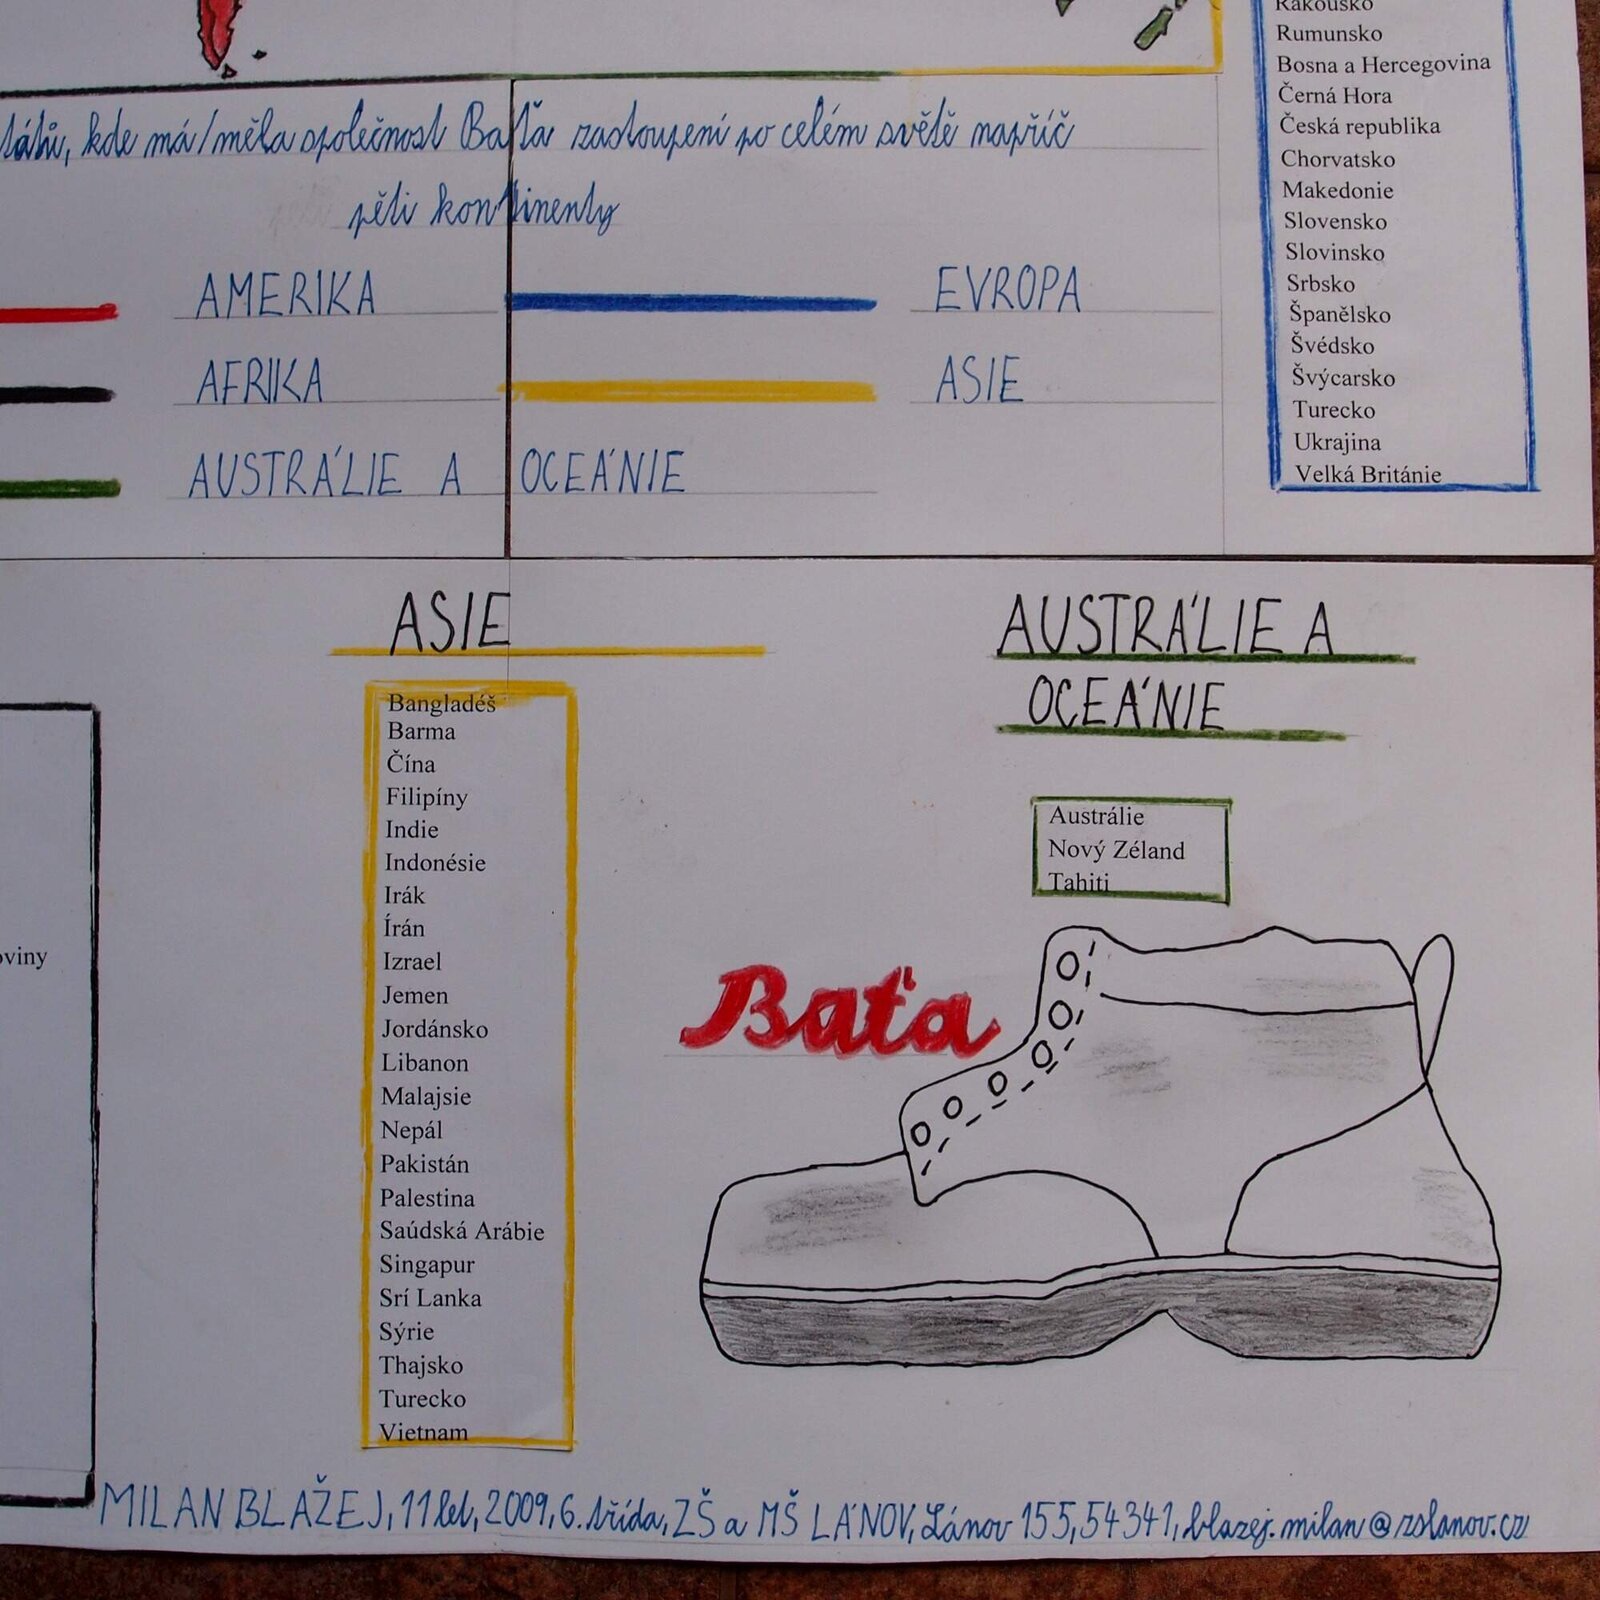 Rakousko
Rumunsko
Bosna a Hercegovina
Černá Hora
Česká republika
Chorvatsko
Makedonie
Slovensko
Slovinsko
Srbsko
Španělsko
Švédsko
Švýcarsko
Turecko
Ukrajina
Velká Británie
kde má/měla společnost Baťa zastoupení po celém světě napříč
pěti kontinenty
AMERIKA
EVROPA
AFRIKA
ASIE
AUSTRÁLIE A OCEÁNIE
ASIE
Bangladéš
Barma
Čína
Filipíny
Indie
Indonésie
Irák
Írán
Izrael
Jemen
Jordánsko
Libanon
Malajsie
Nepál
Pakistán
Palestina
Saúdská Arábie
Singapur
Srí Lanka
Sýrie
Thajsko
Turecko
Vietnam
AUSTRÁLIE A
OCEÁNIE
Austrálie
Nový Zéland
Tahiti
Baťa
MILAN BLAŽEJ, 11 let, 2009, 6. třída, ZŠ a MŠ LÁNOV, Lánov 155, 54341, blazej.milan@zslanov.cz